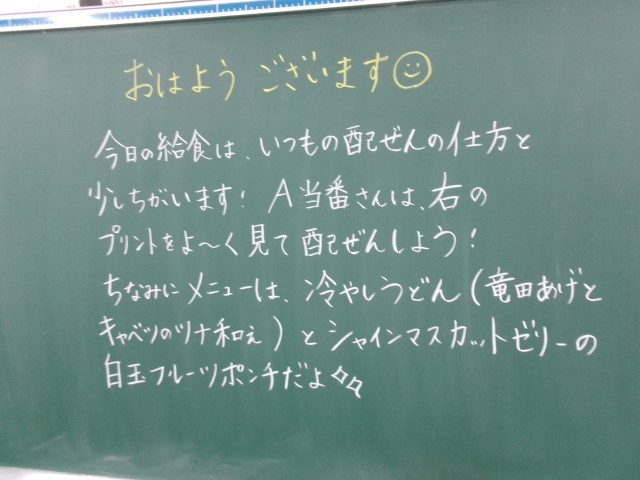 おはよう ございます☺
今日の給食は、いつもの配ぜんの仕方と
少しちがいます！ A当番さんは、右の
プリントをよ～く見て配ぜんしよう！
ちなみにメニューは、冷やしうどん（竜田あげと
キャベツのツナ和え）とシャインマスカットゼリーの
白玉フルーツポンチだよ